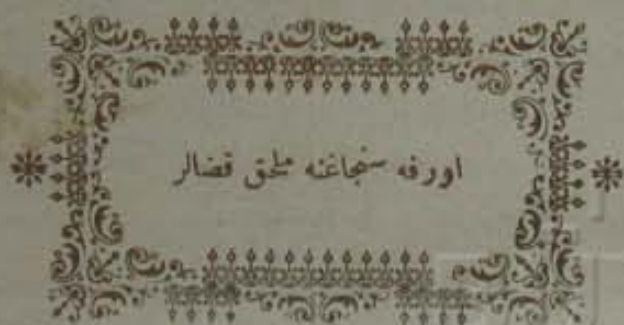 اورفه سنجاغنه ملحق قضالر